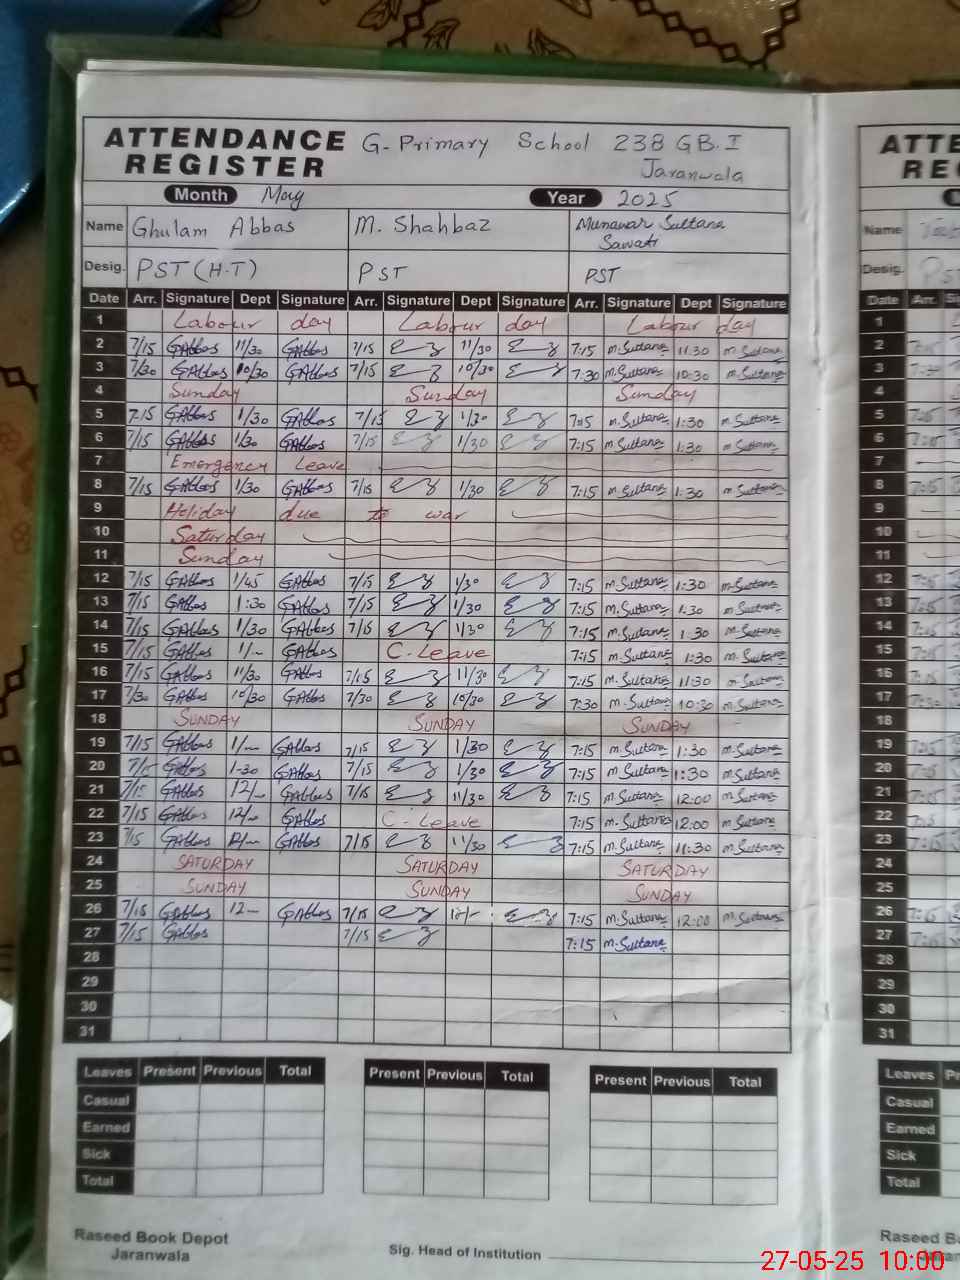 ATTENDANCE REGISTER G. Primary School 238 GB.I Jaranwala
Month May Year 2025
Name Ghulam Abbas M. Shahbaz Munawar Sultana
Desig. PST (H.T) PST PST
Date Arr. Signature Dept Signature Arr. Signature Dept Signature Arr. Signature Dept Signature
1 Labour day Labour day Labour day
2 7/15 GAbbas 11/30 GAbbas 7/15 11/30 7:15 M.Sultana 11.30 M.Sultana
3 7/30 GAbbas 10/30 GAbbas 7/15 10/30 7.30 M.Sultana 10:30 M.Sultana
4 Sunday Sunday Sunday
5 7:15 GAbbas 1/30 GAbbas 7/15 1/30 7:15 M.Sultana 1:30 M.Sultana
6 7/15 GAbbas 1/30 GAbbas 7/15 1/30 7:15 M.Sultana 1:30 M.Sultana
7 Emergency Leave
8 7/15 GAbbas 1/30 GAbbas 7/15 1/30 7:15 M.Sultana 1:30 M.Sultana
9 Holiday due to war
10 Saturday
11 Sunday
12 7/15 GAbbas 1/45 GAbbas 7/15 1/30 7:15 M.Sultana 1:30 M.Sultana
13 7/15 GAbbas 1:30 GAbbas 7/15 1/30 7:15 M.Sultana 1:30 M.Sultana
14 7/15 GAbbas 1/30 GAbbas 7/15 1/30 7:15 M.Sultana 1.30 M.Sultana
15 7/15 GAbbas 1/- GAbbas C. Leave 7:15 M.Sultana 1:30 M.Sultana
16 7/15 GAbbas 11/30 GAbbas 7/15 11/30 7:15 M.Sultana 11:30 M.Sultana
17 7/30 GAbbas 10/30 GAbbas 7/30 10/30 7:30 M.Sultana 10:30 M.Sultana
18 SUNDAY SUNDAY SUNDAY
19 7/15 GAbbas 1/- GAbbas 7/15 1/30 7:15 M.Sultana 1:30 M.Sultana
20 GAbbas 1-30 GAbbas 7/15 1/30 7:15 M.Sultana 1:30 M.Sultana
21 7/15 GAbbas 12/- GAbbas 7/15 11/30 7:15 M.Sultana 12:00 M.Sultana
22 7/15 GAbbas 12/- GAbbas C. Leave 7:15 M.Sultana 12:00 M.Sultana
23 7/15 GAbbas GAbbas 7/15 11/30 7:15 M.Sultana 11:30 M.Sultana
24 SATURDAY SATURDAY SATURDAY
25 SUNDAY SUNDAY SUNDAY
26 7/15 GAbbas 12- GAbbas 7/15 7:15 M.Sultana 12:00 M.Sultana
27 7/15 GAbbas 7/15 7:15 M.Sultana
28
29
30
31
Leaves Present Previous Total Present Previous Total Present Previous Total
Casual
Earned
Sick
Total
Raseed Book Depot
Jaranwala
Sig. Head of Institution
27-05-25 10:00